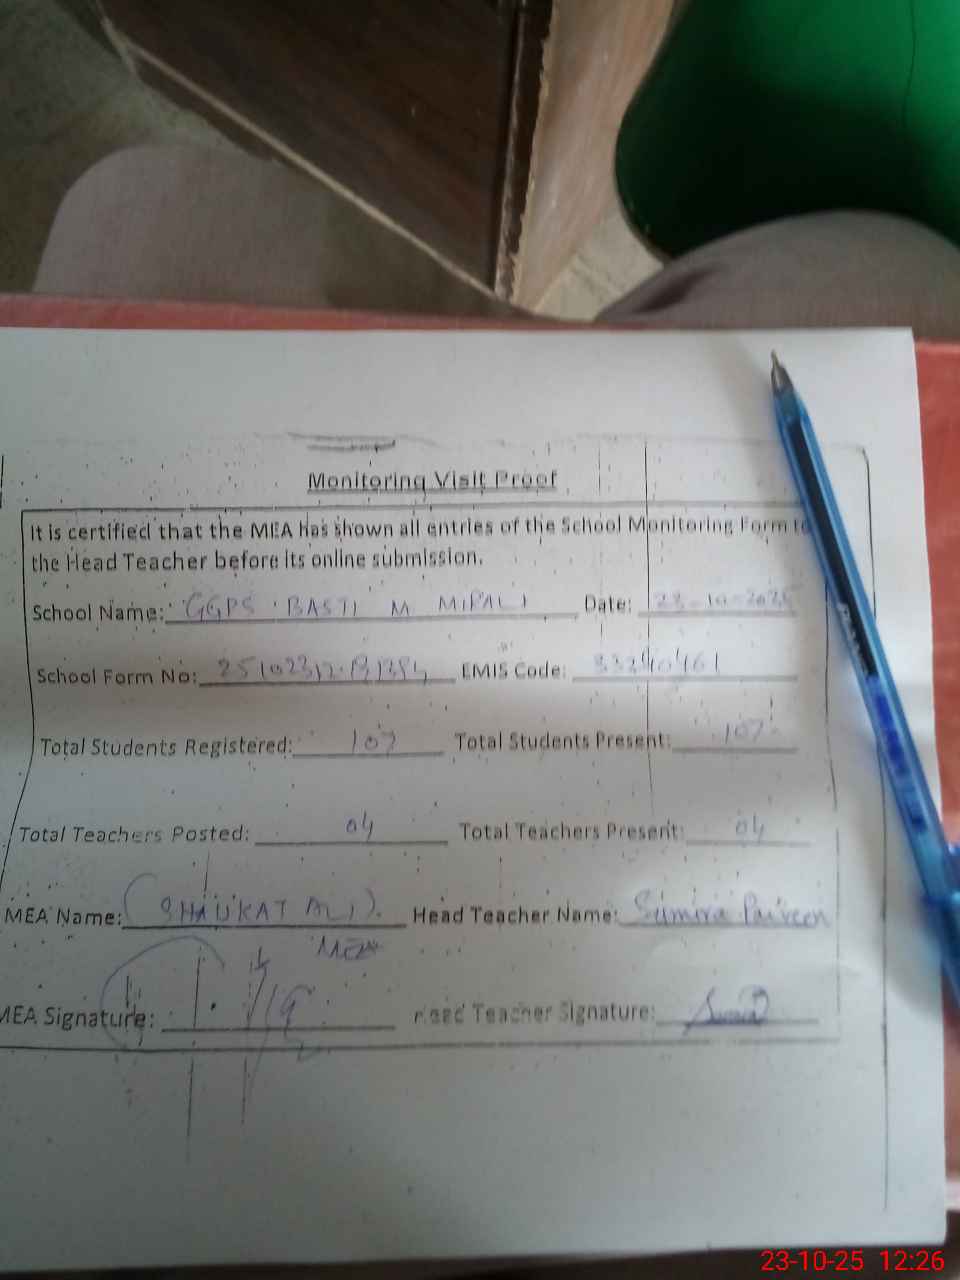 Monitoring Visit Proof
It is certified that the MEA has shown all entries of the School Monitoring Form to
the Head Teacher before its online submission.
School Name: GGPS BASTI M MIPALI Date: 23-10-2025
School Form No: EMIS Code: 33240461
Total Students Registered: 107 Total Students Present: 107
Total Teachers Posted: 04 Total Teachers Present: 04
MEA Name: (SHAUKAT ALI). Head Teacher Name: Sumira Parveen
MEA
MEA Signature: Head Teacher Signature:
23-10-25 12:26